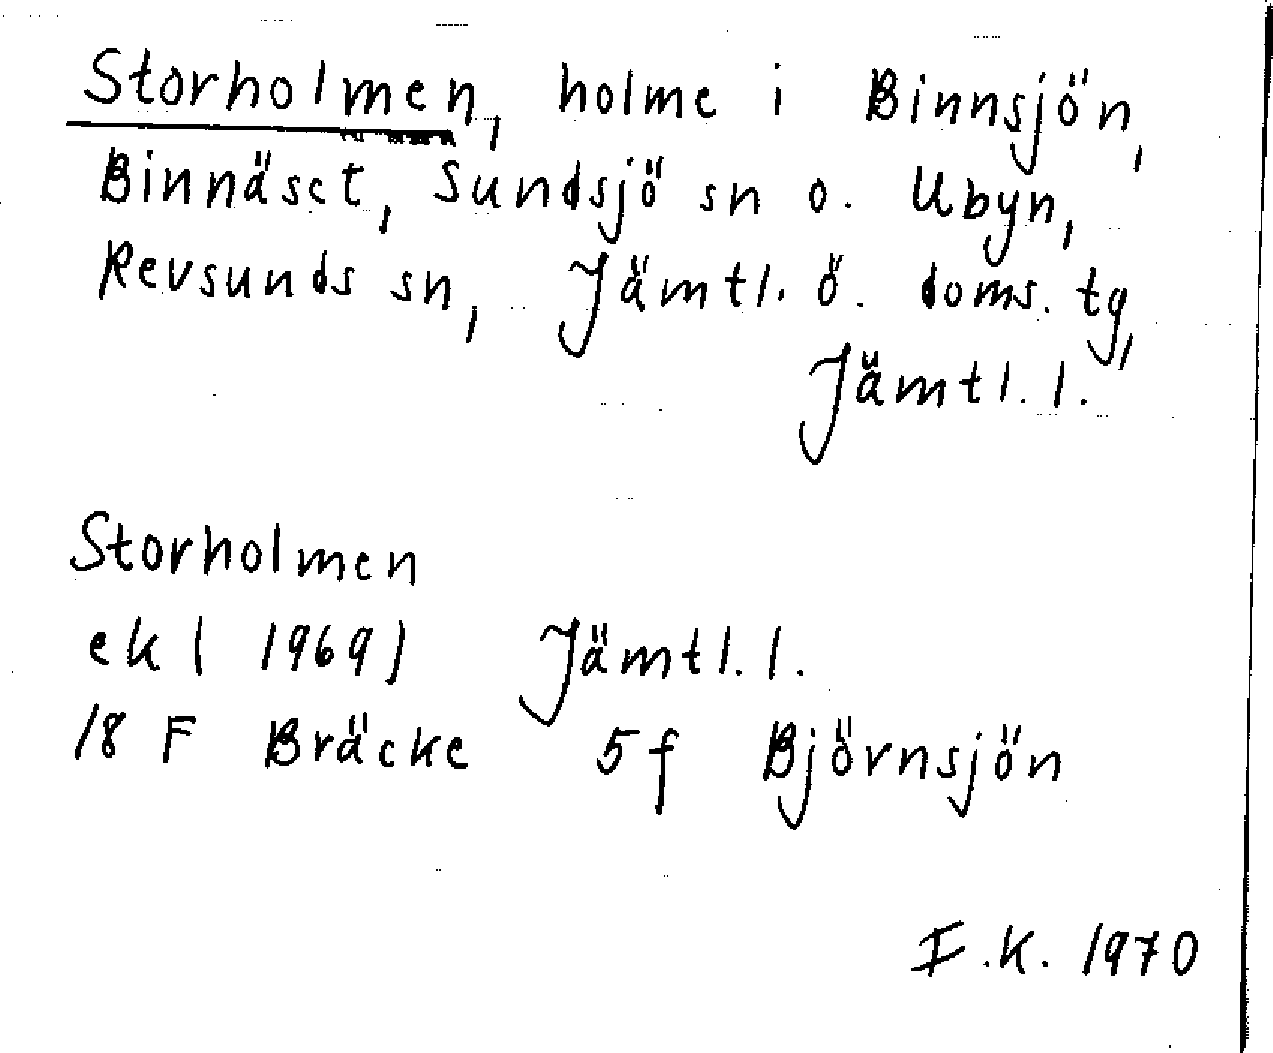 Storholmen, holme i Binnsjön,
Binnäset, Sundsjö sn o. Ubyn,
Revsunds sn, Jämtl. ö. doms. tg,
Jämtl. l.
Storholmen
ek ( 1969) Jämtl. l.
18 F Bräcke 5 f Björnsjön
F.K. 1970